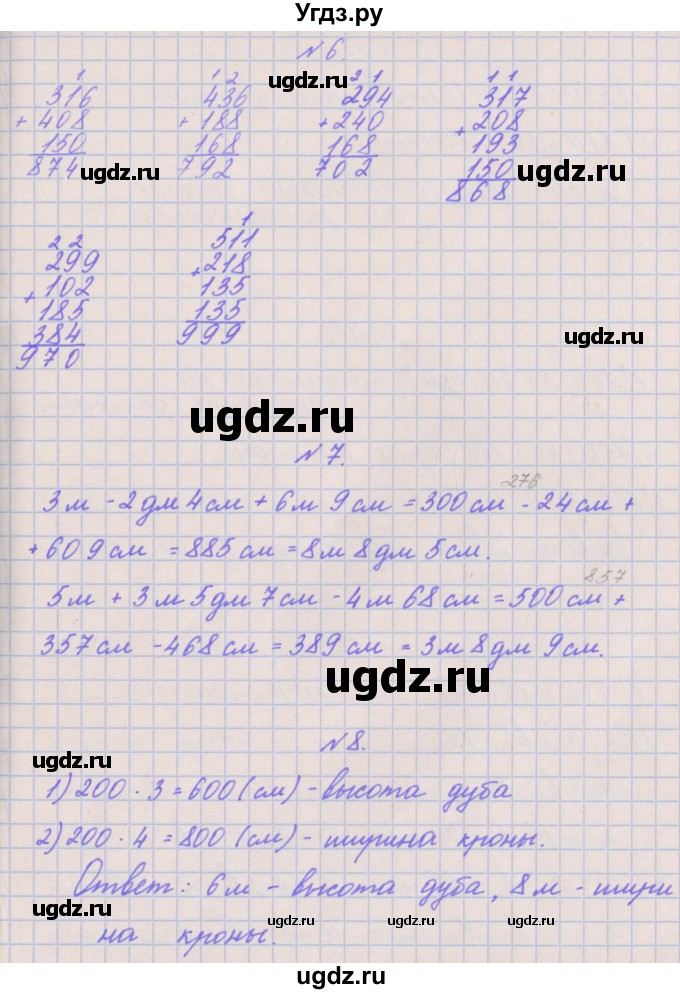 Угдз.ру
№ 6.
1
316
+ 408
150
874
1 2
436
+ 188
168
792
2 1
294
+ 240
168
702
1 1
317
+ 208
193
150
868
ugdz.ru
ugdz.ru
ugdz.ru
2 2
299
+ 102
185
384
970
1
511
+ 218
135
135
999
ugdz.ru
ugdz.ru
№ 7.
276
3 м - 2 дм 4 см + 6 м 9 см = 300 см - 24 см +
+ 609 см = 885 см = 8 м 8 дм 5 см.
857
5 м + 3 м 5 дм 7 см - 4 м 68 см = 500 см +
357 см - 468 см = 389 см = 3 м 8 дм 9 см.
ugdz.ru
№ 8.
ugdz.ru
1) 200 · 3 = 600 (см) - высота дуба
2) 200 · 4 = 800 (см) - ширина кроны.
Ответ: 6 м - высота дуба, 8 м - шири
на кроны.
ugdz.ru
ugdz.ru
ugdz.ru
ugdz.ru
ugdz.ru